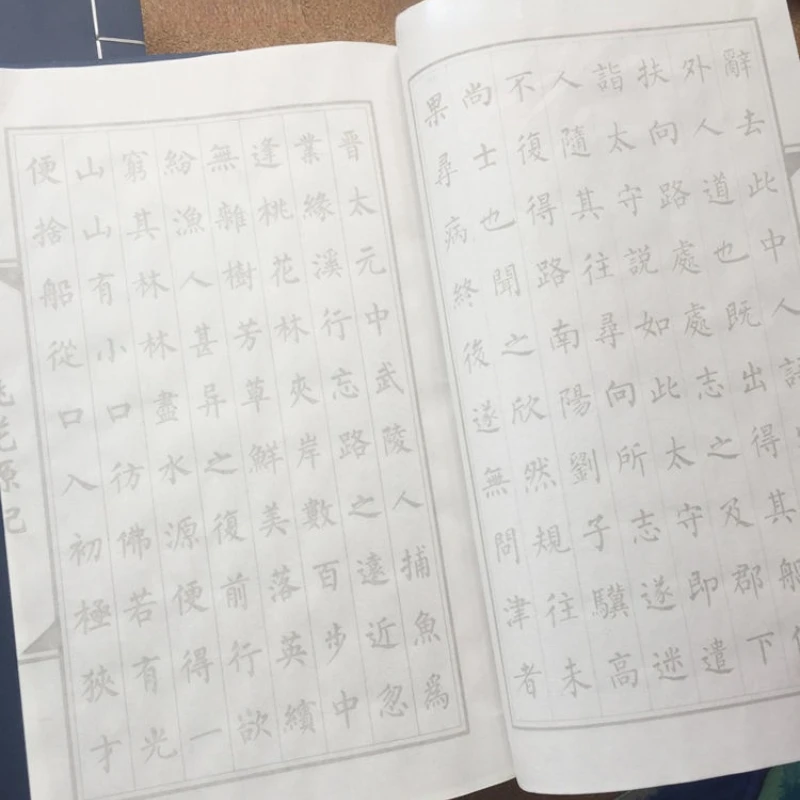 辭去此中人語
外人道也既出得其船便
扶向路處處志之及郡下
詣太守說如此太守即遣
人隨其往尋向所志遂迷
不復得路南陽劉子驥高
尚士也聞之欣然規往未
果尋病終後遂無問津者
晉太元中武陵人捕魚爲
業緣溪行忘路之遠近忽
逢桃花林夾岸數百步中
無雜樹芳草鮮美落英繽
紛漁人甚异之復前行欲
窮其林林盡水源便得一
山山有小口彷佛若有光
便捨船從口入初極狹才
桃花源記